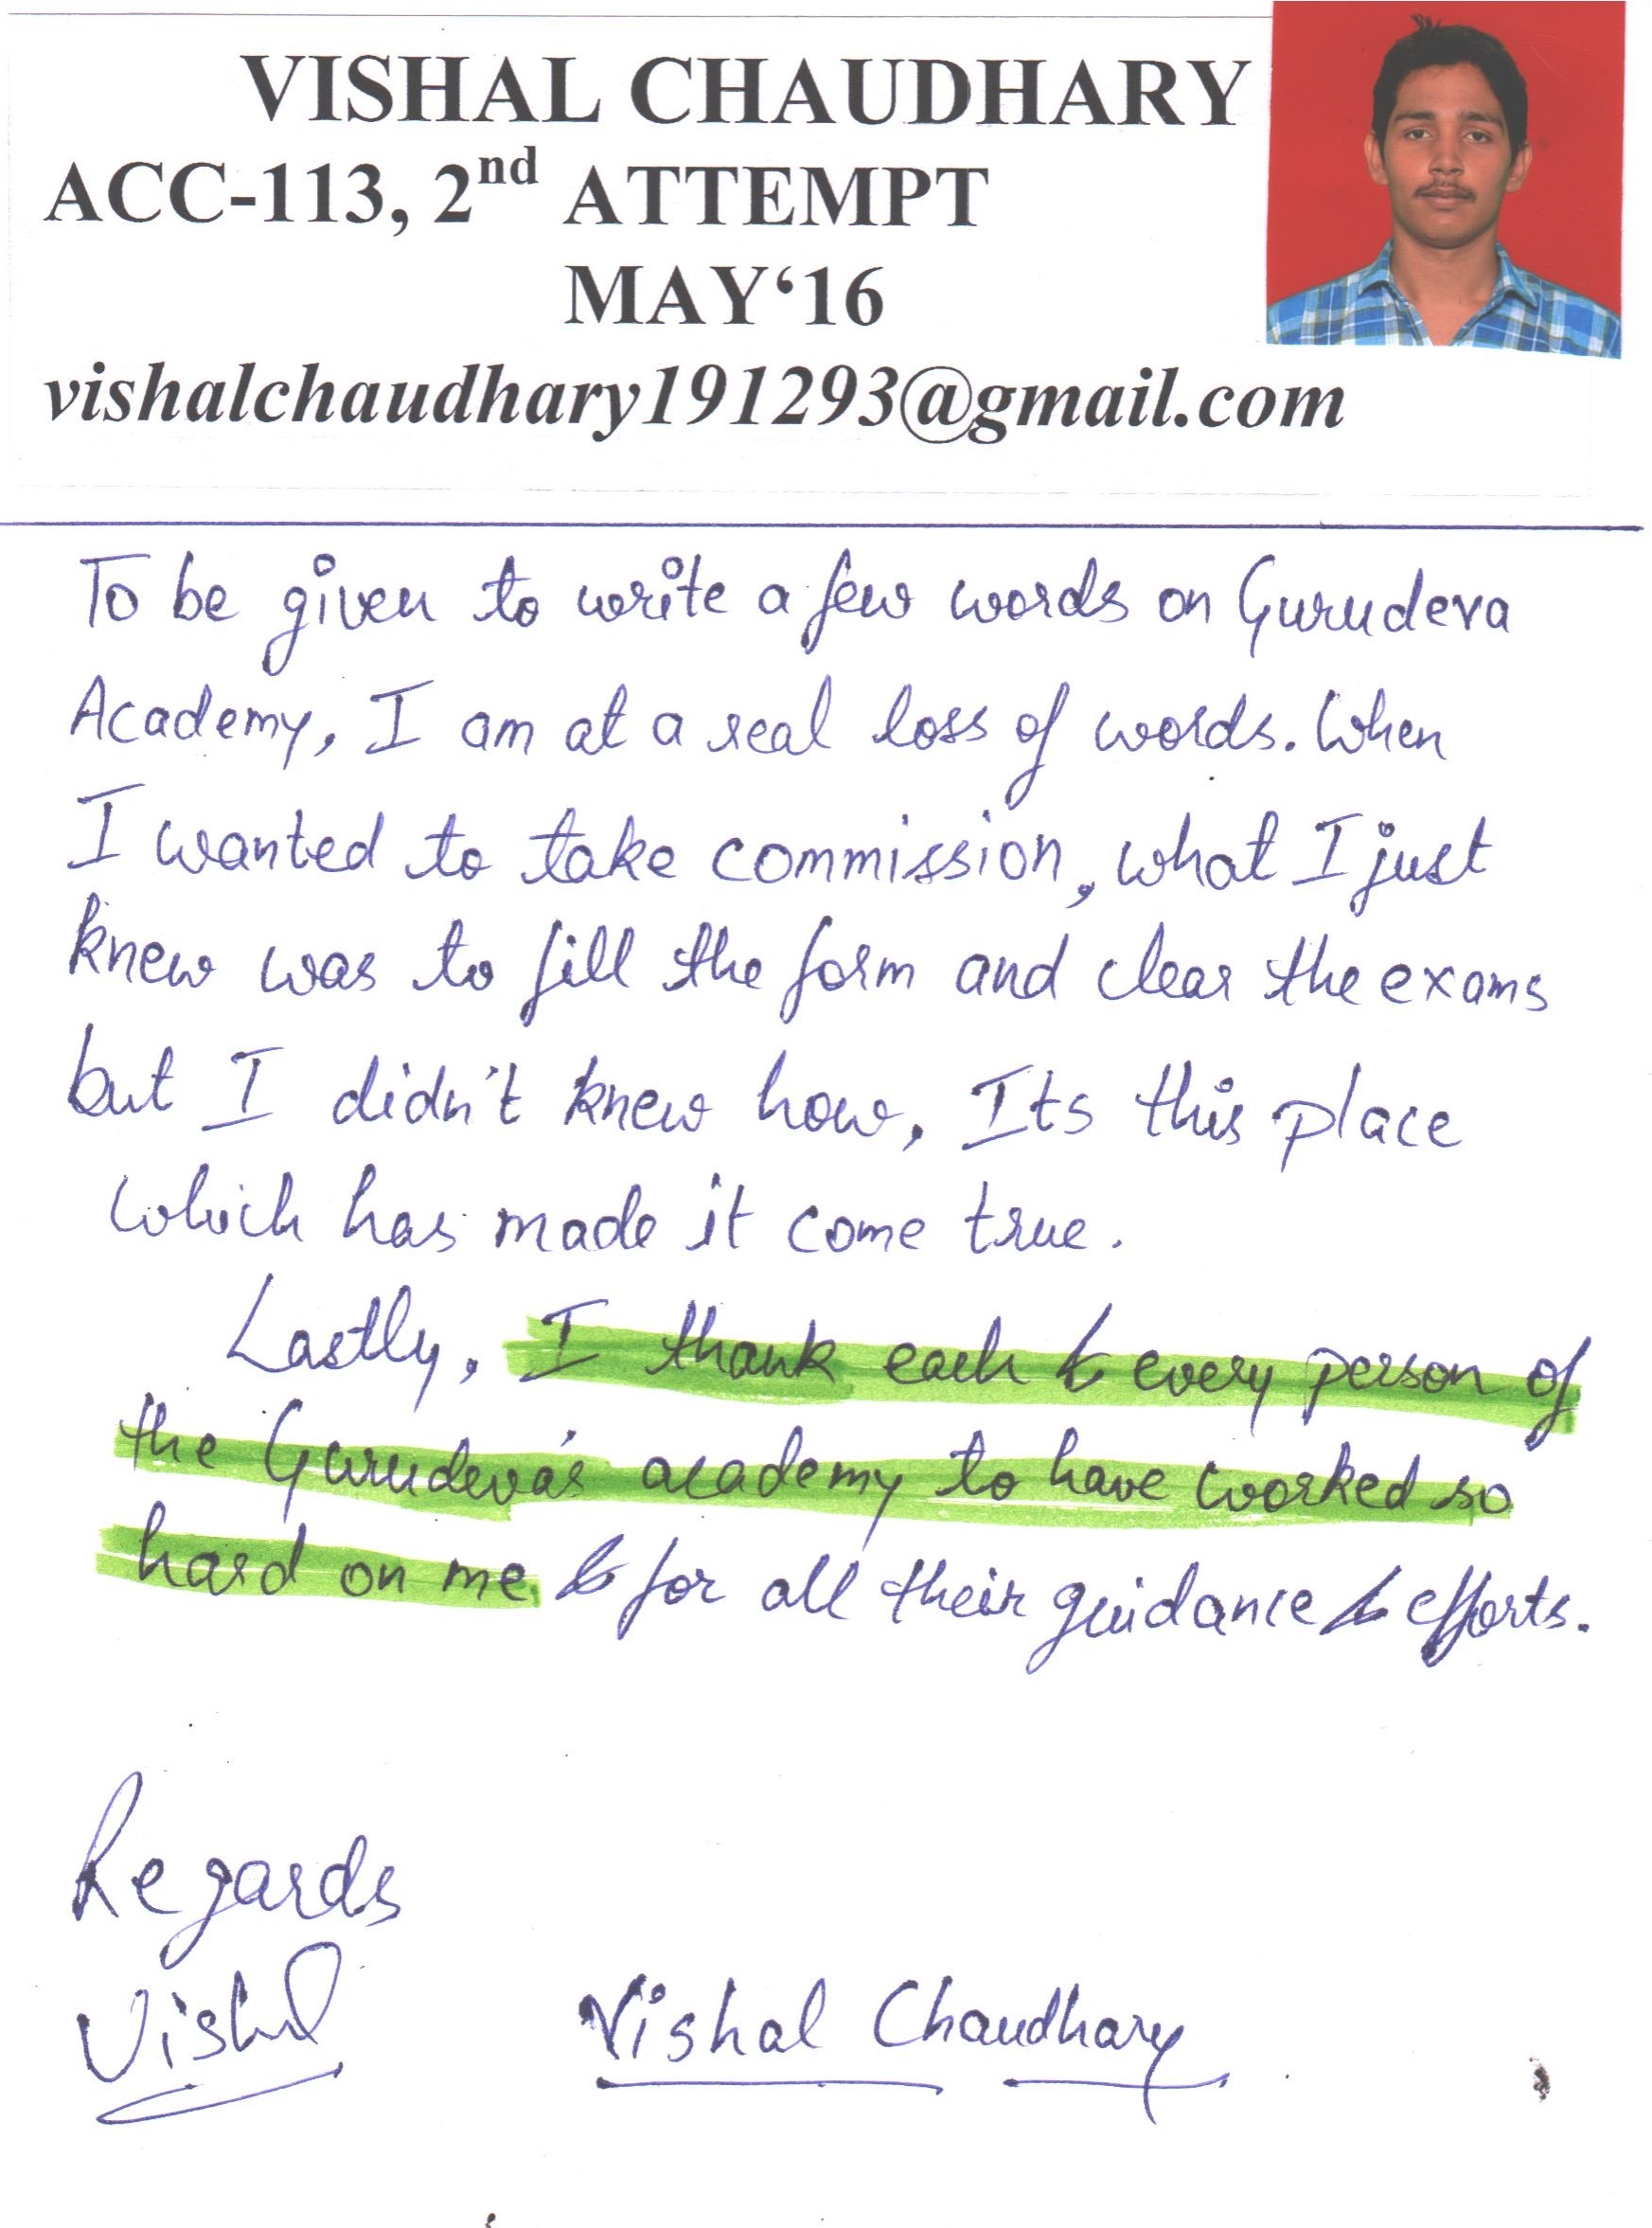 VISHAL CHAUDHARY
ACC-113, 2nd ATTEMPT
MAY‘16
vishalchaudhary191293@gmail.com
To be given to write a few words on Gurudeva
Academy, I am at a real loss of words. When
I wanted to take commission, what I just
knew was to fill the form and clear the exams
but I didn't knew how, Its this place
which has made it come true.
Lastly, I thank each & every person of
the Gurudeva's academy to have worked so
hard on me. & for all their guidance & efforts.
Regards
Vishal
Vishal Chaudhary